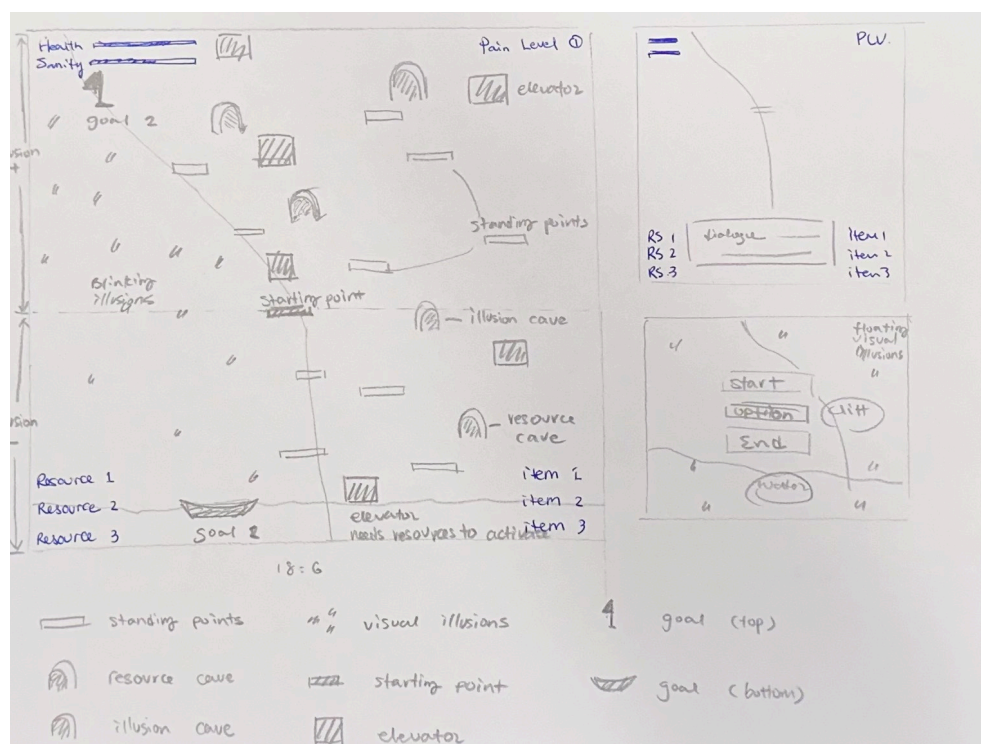 Health
Sanity
Pain Level ①
elevator
goal 2
standing points
Blinking
illusions
starting point
illusion cave
resource
cave
Resource 1
Resource 2
Resource 3
Goal 2
elevator
needs resources to activate
item 1
item 2
item 3
18:6
PLV.
RS 1
RS 2
RS 3
Dialogue
item 1
item 2
item 3
floating
visual
illusions
start
option
End
cliff
water
standing points
visual illusions
goal (top)
resource cave
starting point
goal (bottom)
illusion cave
elevator